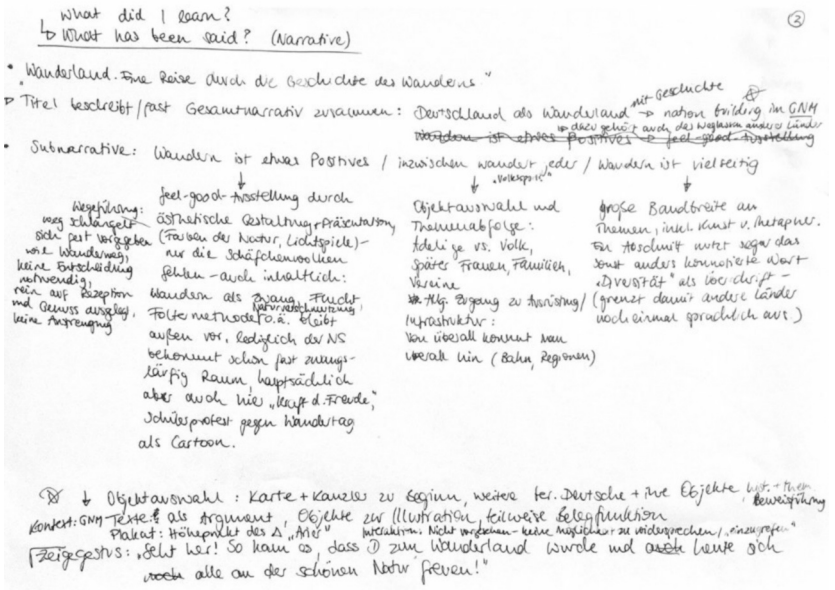 What did I learn?
↳ What has been said? (Narrative)
③
• "Wanderland. Eine Reise durch die Geschichte des Wanderns"
mit Geschichte
▷ Titel beschreibt/fast Gesamtnarrativ zusammen: Deutschland als Wanderland → nation building im GNM
→ dazu gehört auch das Weglassen anderer Länder
Wandern ist etwas Positives → feel-good-Ausstellung
• Subnarrative: Wandern ist etwas Positives / inzwischen wandert jeder / Wandern ist vielseitig
"Volkssport"
Wegeführung:
Weg schlängelt
sich fast vorgegeben
wie Wanderweg,
keine Entscheidung
notwendig,
rein auf Rezeption
und Genuss ausgelegt,
keine Anstrengung
feel-good-Ausstellung durch
ästhetische Gestaltung + Präsentation,
(Farben der Natur, Lichtspiele) –
nur die Schäfchenwolken
fehlen – auch inhaltlich:
Wandern als Zwang, Flucht,
Naturverschmutzung,
Foltermethode o.ä. bleibt
außen vor, lediglich der NS
bekommt schon fast zwangs-
läufig Raum, hauptsächlich
aber auch hier "Kraft d. Freude,"
Schülerprotest gegen Wandertag
als Cartoon.
Objektauswahl und
Themenabfolge:
Adelige vs. Volk,
später Frauen, Familien,
Vereine
Allg. Zugang zu Ausrüstung /
Infrastruktur:
Von überall kommt man
überall hin (Bahn, Regionen)
große Bandbreite an
Themen, inkl. Kunst u. Metapher.
Ein Abschnitt nutzt sogar das
sonst anders konnotierte Wort
"Diversität" als Überschrift –
(grenzt damit andere Länder
noch einmal sprachlich aus.)
↓ Objektauswahl: Karte + Kanzler zu Beginn, weitere ber. Deutsche + ihre Objekte
Beweisführung
Kontext: GNM Texte als Argument, Objekte zur Illustration, teilweise Belegfunktion
Plakat: Höhepunkt des Δ "Arier"
Interaktion: Nicht vorgesehen – keine Möglichkeit zu widersprechen / "einzugreifen"
Zeigegestus: "Seht her! So kam es, dass D zum Wanderland wurde und auch heute sich
noch alle an der schönen Natur freuen!"